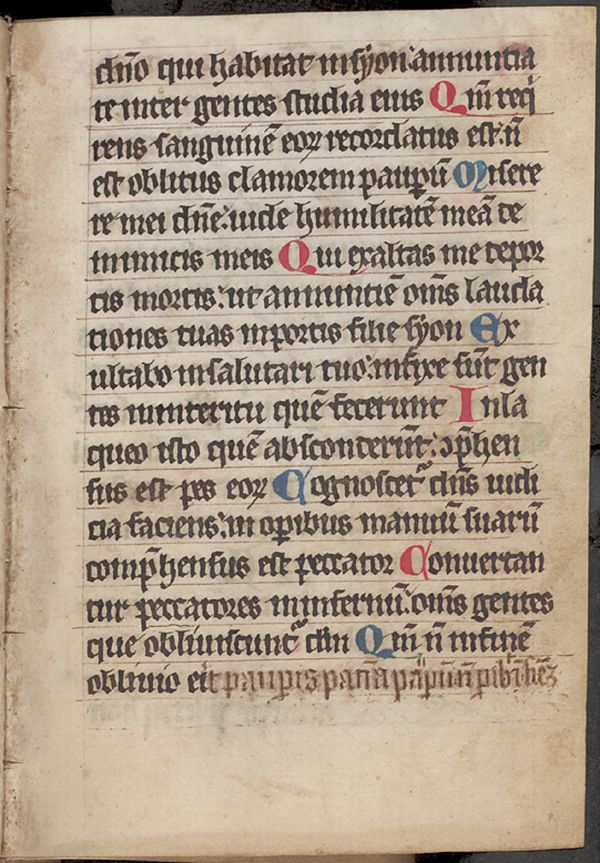 dn̄o qui habitat in syon: annuntia
te inter gentes studia eius Qm̄ req̇
rens sanguinē eoꝝ recordatus est: n̄
est oblitus clamorem paupū Misere
re mei dn̄e: uide humilitatē meā de
inimicis meis Qui exaltas me de por
tis mortis: ut annuntiē om̄s lauda
tiones tuas in portis filie syon Ex
ultabo in salutari tuo: infixe sūt gen
tes in interitu quē fecerunt In la
queo isto quē absconderūt: ꝯp̄hen
sus est pes eoꝝ Cognoscet᷑ dn̄s iudi
cia faciens: in oꝑibus manuū suarū
comp̄hensus est peccator Conuertan
tur peccatores in infernū: om̄s gentes
que obliuiscunt᷑ dm̄ Qm̄ n̄ in finē
obliuio erit pauꝑis